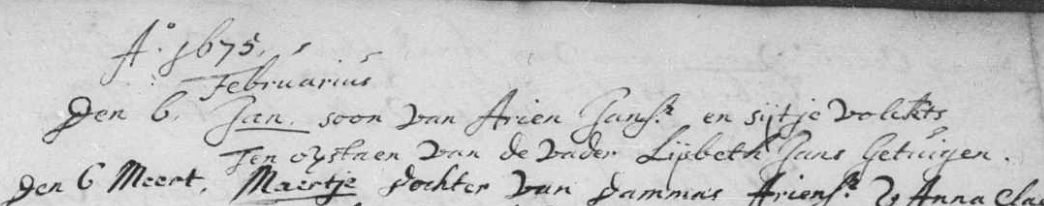 A.º 1675.
Februarius
Den 6. Jan. soon van Arien Jans.ᶻ en sijtje volckts
Ten oystaen van de vader Lijsbeth Jans Getuigen.
Den 6 Meert. Maertje dochter van Dammas Ariens.ᶻ & Anna Clae